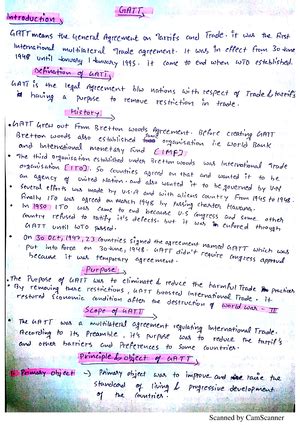 GATT
Introduction
GATT means the General Agreement on Tariffs and Trade. it was the first
International multilateral Trade agreement. It was in effect from 30 June
1948 until January 1 January 1995. it came to end when WTO established.
Definition of GATT,
GATT is the legal agreement b/w nations with respect of Trade & tariffs
is having a purpose to remove restrictions in trade.
History
GATT Grew out from Bretton Woods Agreement. Before creating GATT
Bretton Woods also established some organisation i.e World Bank
and International monetary Fund (IMF).
The third organisation established under Bretton Woods was International Trade
organisation (ITO). So countries agreed on that and wanted it to be
an agency of united nation. and also wanted it to be governed by UN
Several efforts was made by U.S.A and with aliens country From 1945 to 1948.
Finally ITO was agreed on March 1948 by passing charter Havana.
In 1950 ITO was come to end because U.S congress and some other
country refused to notify it's defects. but it was enforced through
GATT until WTO passed.
On 30 Oct, 1947, 23 Countries signed the agreement named GATT which was
put into force on 30 June, 1948. GATT didn't require Congress approval
because it was temporary agreement.
Purpose
The Purpose of GATT was to eliminate & reduce the harmful Trade practices
By removing these restrictions, GATT boosted International Trade. It
restored economic condition after the destruction of World War - II
Scope of GATT
The GATT was a multilateral agreement regulating International Trade.
According to its Preamble, it's purpose was to reduce the tariffs
and other barriers and Preferences to some countries.
Principle & object of GATT
Primary Object → Primary object was to improve and raise the
standard of living & progressive development
of the countries.
Scanned by CamScanner